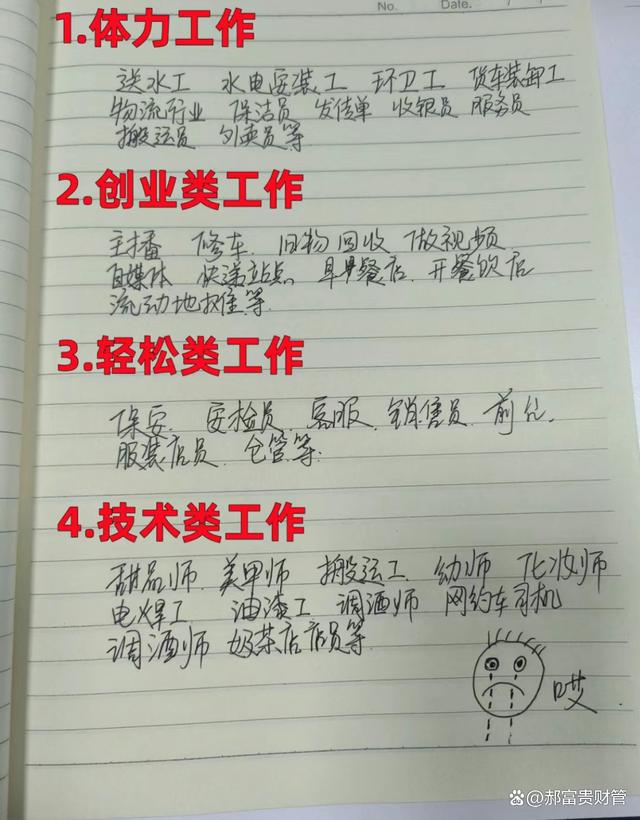 No.
Date.
1.体力工作
送水工 水电安装工 环卫工 货车装卸工
物流行业 保洁员 发传单 收银员 服务员
搬运员 外卖员等
2.创业类工作
主播 修车 旧物回收 做视频
自媒体 快递站点 早餐店 开餐饮店
流动地摊等
3.轻松类工作
保安 安检员 客服 销售员 前台
服装店员 仓管等
4.技术类工作
甜品师 美甲师 搬运工 幼师 化妆师
电焊工 油漆工 调酒师 网约车司机
调酒师 奶茶店店员等
哎
@郝富贵财管